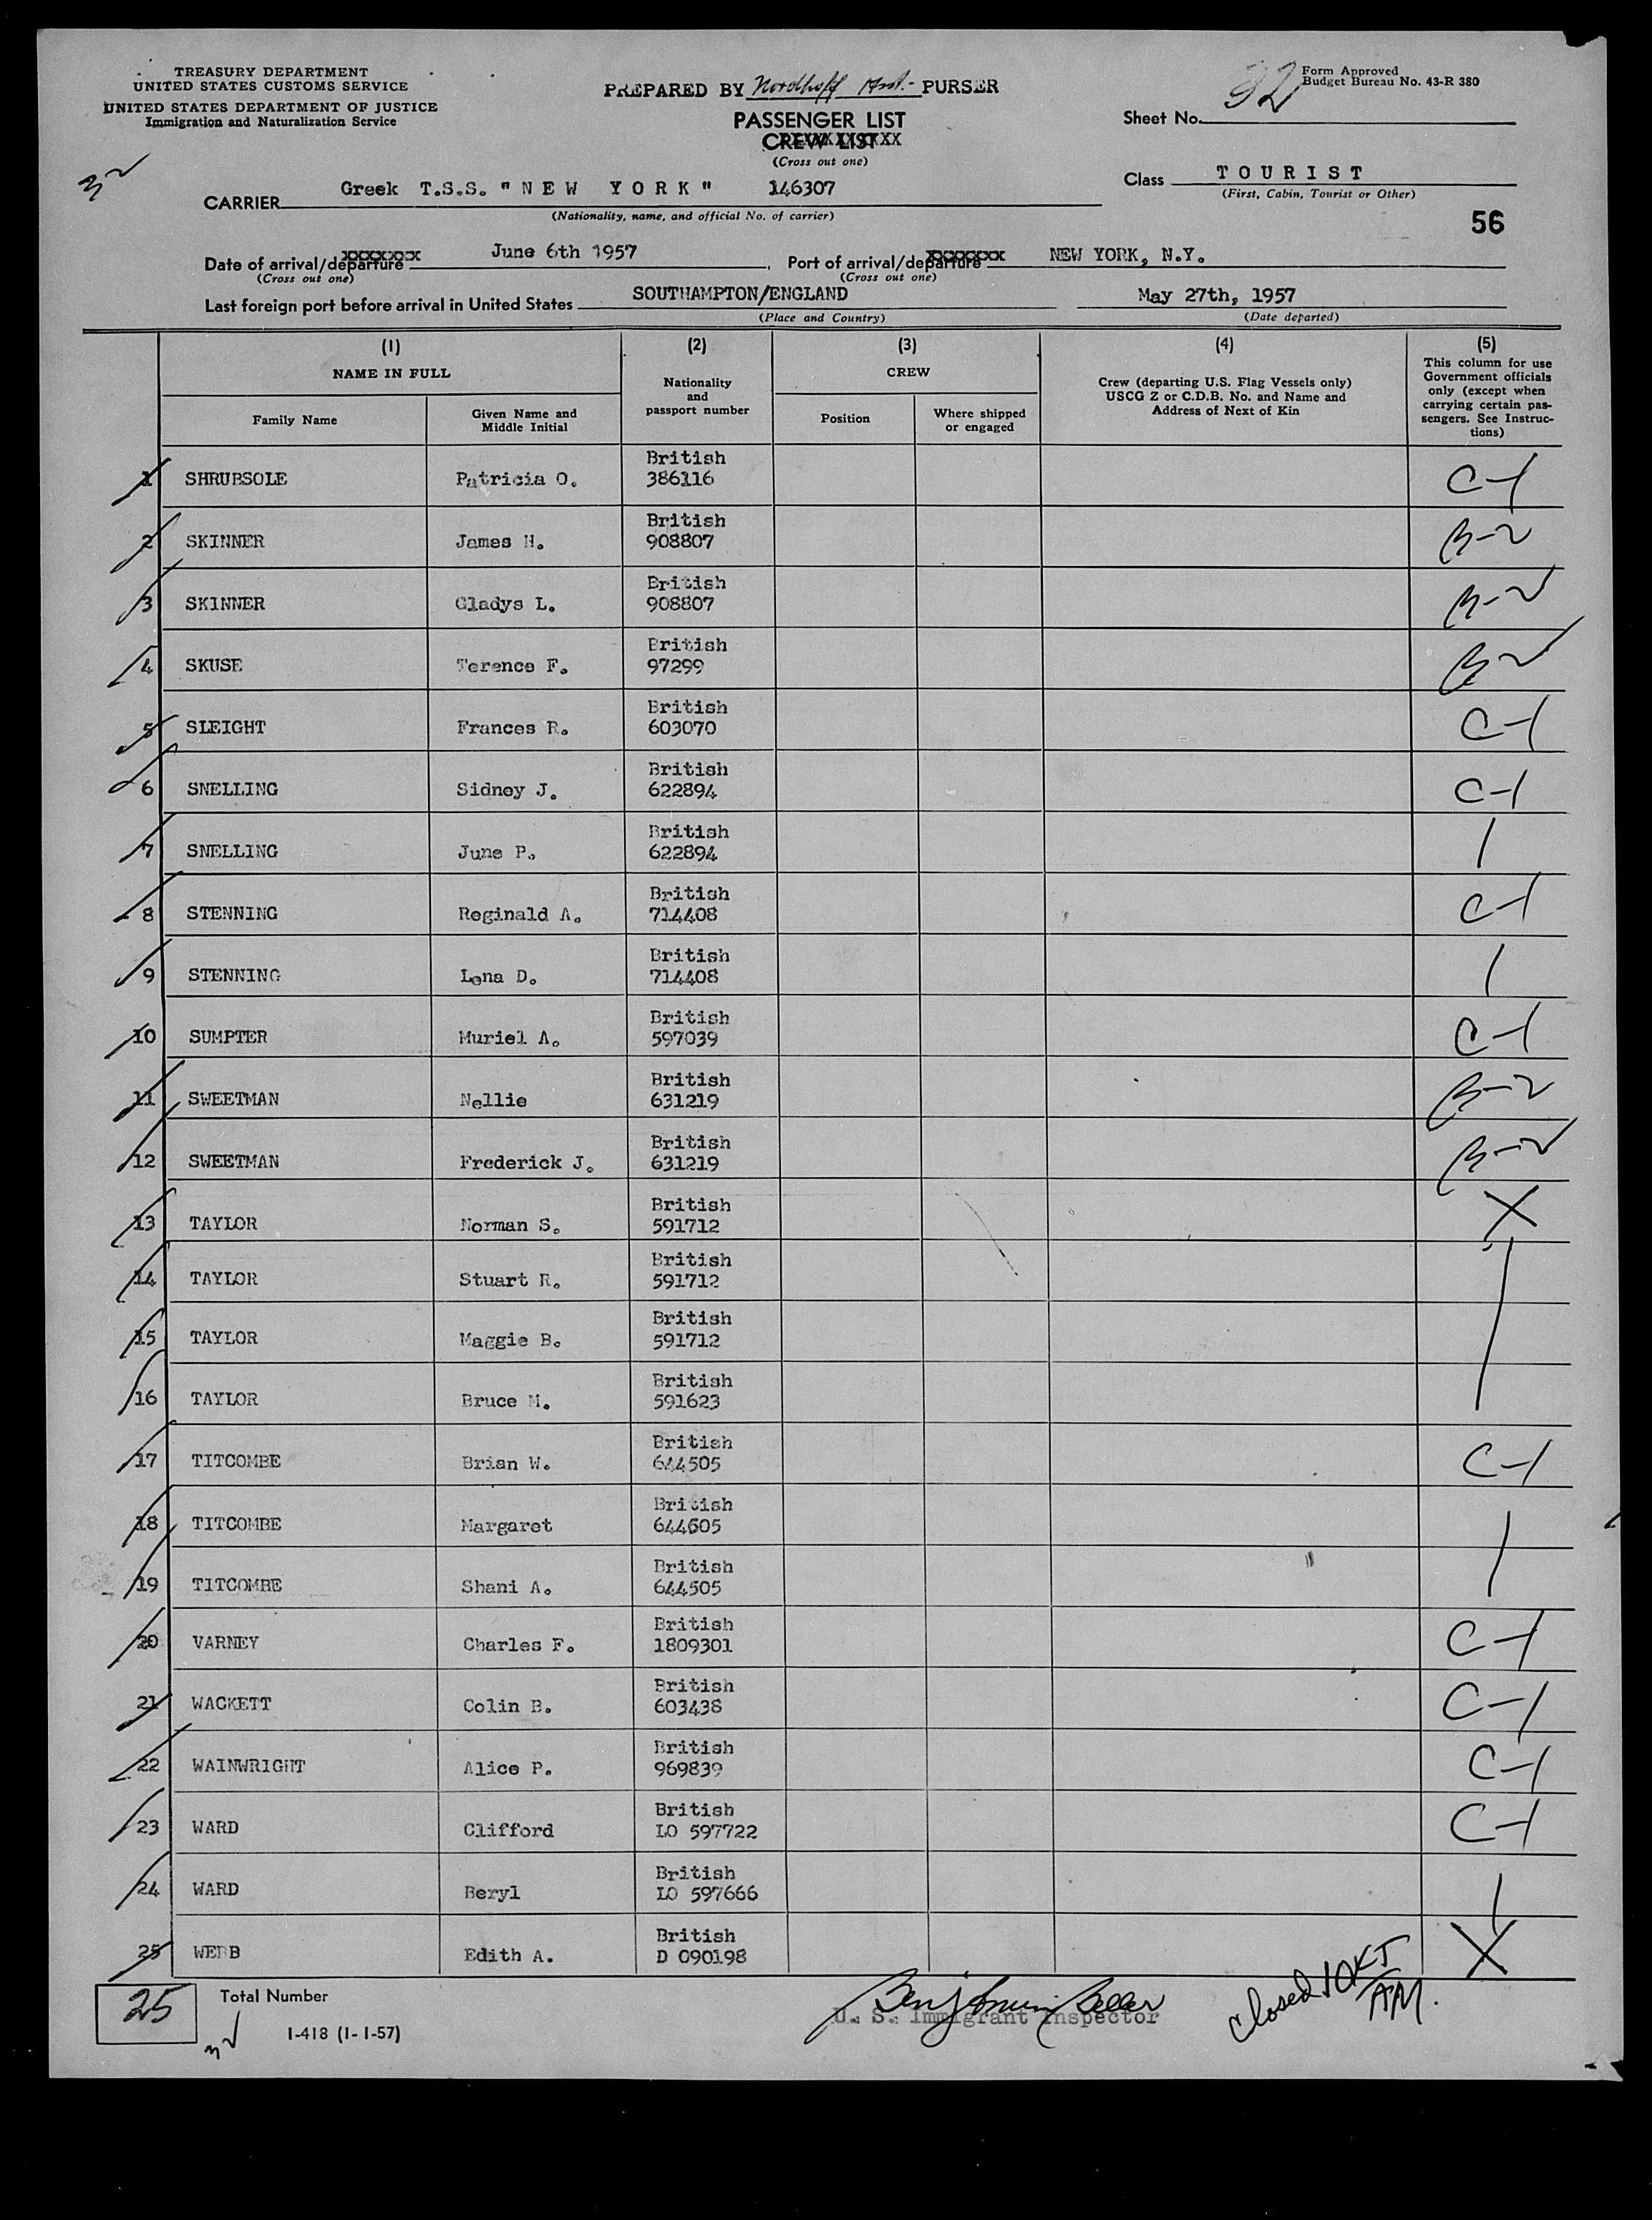 TREASURY DEPARTMENT
UNITED STATES CUSTOMS SERVICE
UNITED STATES DEPARTMENT OF JUSTICE
Immigration and Naturalization Service
32
PREPARED BY Nordhoff Asst.- PURSER
PASSENGER LIST
CREW LIST
(Cross out one)
Form Approved
Budget Bureau No. 43-R 380
Sheet No. 32
Class TOURIST
(First, Cabin, Tourist or Other)
CARRIER Greek T.S.S. "NEW YORK" 146307
(Nationality, name, and official No. of carrier)
56
Date of arrival/departure June 6th 1957, Port of arrival/departure NEW YORK, N.Y.
(Cross out one) (Cross out one)
Last foreign port before arrival in United States SOUTHAMPTON/ENGLAND May 27th, 1957
(Place and Country) (Date departed)
(1) (2) (3) (4) (5)
NAME IN FULL
Family Name
Given Name and
Middle Initial
Nationality
and
passport number
CREW
Position
Where shipped
or engaged
Crew (departing U.S. Flag Vessels only)
USCG Z or C.D.B. No. and Name and
Address of Next of Kin
This column for use
Government officials
only (except when
carrying certain pas-
sengers. See Instruc-
tions)
British
1 SHRUBSOLE Patricia O. 386116 C-1
British
2 SKINNER James H. 908807 B-2
British
3 SKINNER Gladys L. 908807 B-2
British
4 SKUSE Terence F. 97299 B-2
British
5 SLEIGHT Frances R. 603070 C-1
British
6 SNELLING Sidney J. 622894 C-1
British
7 SNELLING June P. 622894 |
British
8 STENNING Reginald A. 714408 C-1
British
9 STENNING Lena D. 714408 |
British
10 SUMPTER Muriel A. 597039 C-1
British
11 SWEETMAN Nellie 631219 B-2
British
12 SWEETMAN Frederick J. 631219 B-2
British
13 TAYLOR Norman S. 591712 X
British
14 TAYLOR Stuart R. 591712
British
15 TAYLOR Maggie B. 591712
British
16 TAYLOR Bruce M. 591623
British
17 TITCOMBE Brian W. 644505 C-1
British
18 TITCOMBE Margaret 644505
British
19 TITCOMBE Shani A. 644505
British
20 VARNEY Charles F. 1809301 C-1
British
21 WACKETT Colin B. 603438 C-1
British
22 WAINWRIGHT Alice P. 969839 C-1
British
23 WARD Clifford LO 597722 C-1
British
24 WARD Beryl LO 597666 |
British
25 WEBB Edith A. D 090198 X
25 Total Number
32
I-418 (1-1-57)
Benjamin
U. S. Immigrant Inspector
Closed 10
AM.